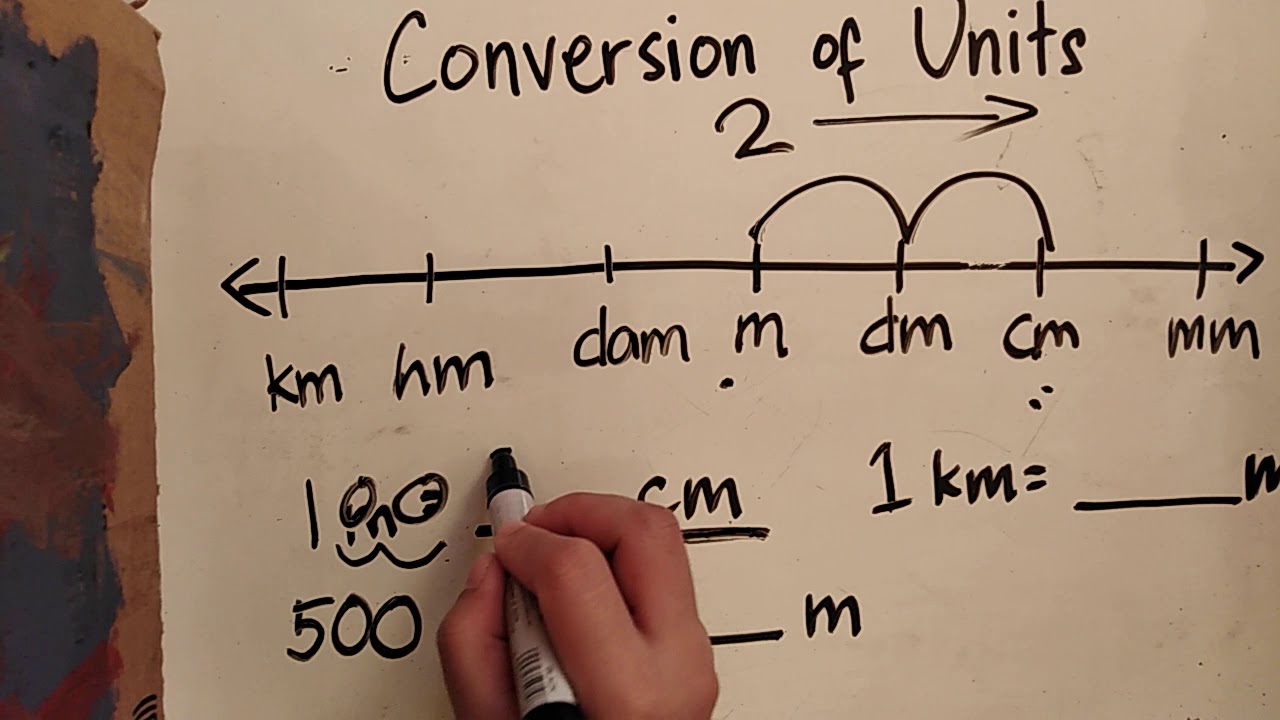 Conversion of Units
2
km hm dam m dm cm mm
1 cm
1 km = ____ m
500 ____ m